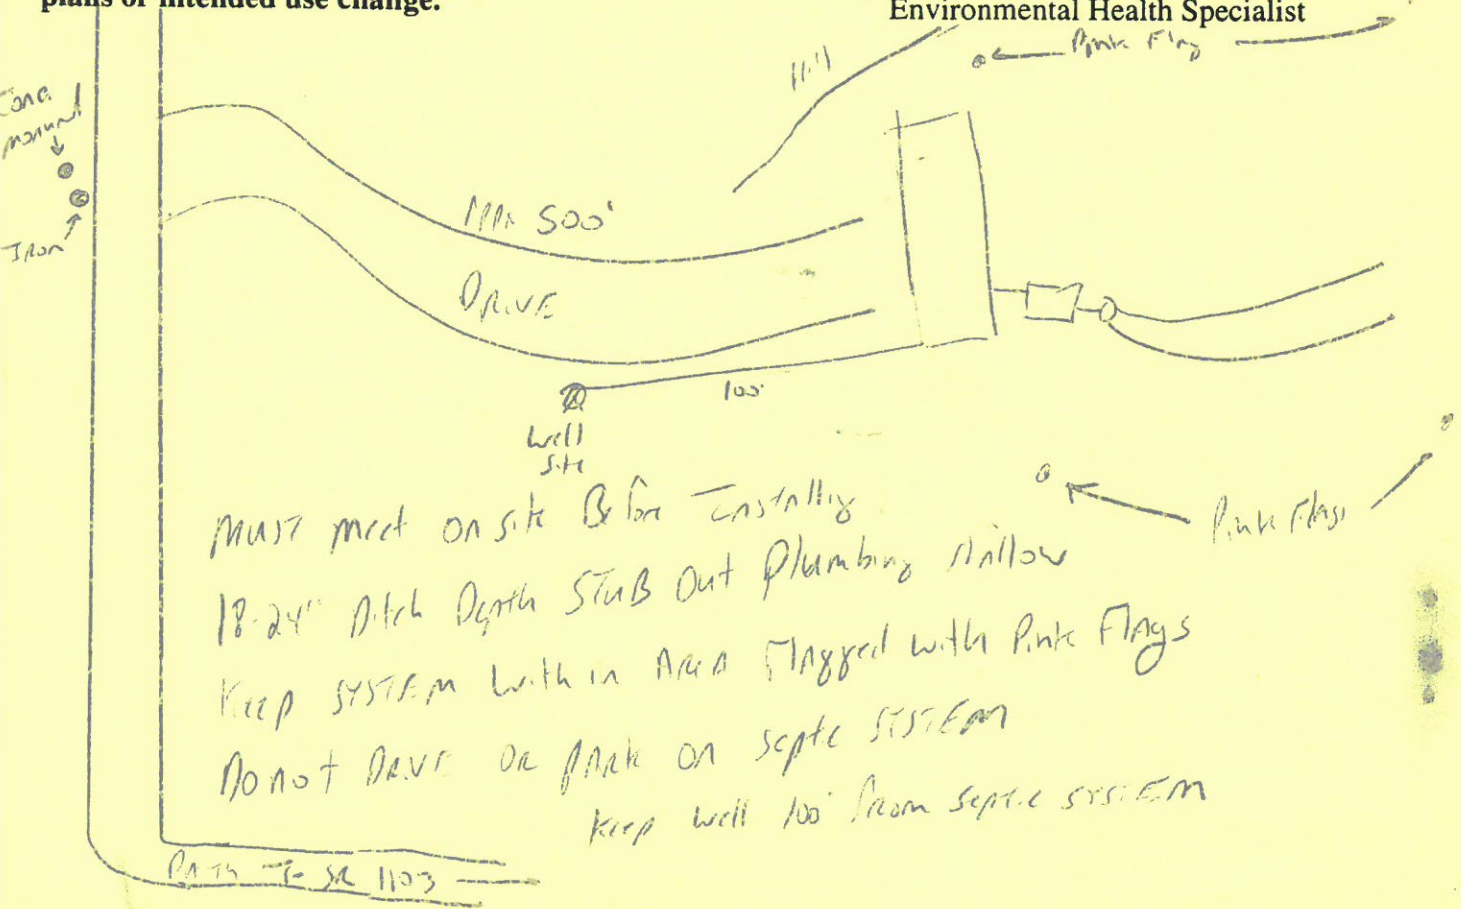 plans or intended use change.
Environmental Health Specialist
Pink Flag
Conc.
monum
Iron
500'
DRIVE
100'
Well
Site
Pink Flags
MUST meet on site Before Installig
18-24" Ditch Depth STUB Out Plumbing Shallow
Keep SYSTEM with in AREA Flagged with Pink Flags
Do not DRIVE OR PARK on septc SYSTEM
Keep well 100' from septic SYSTEM
PATH To SR 1103